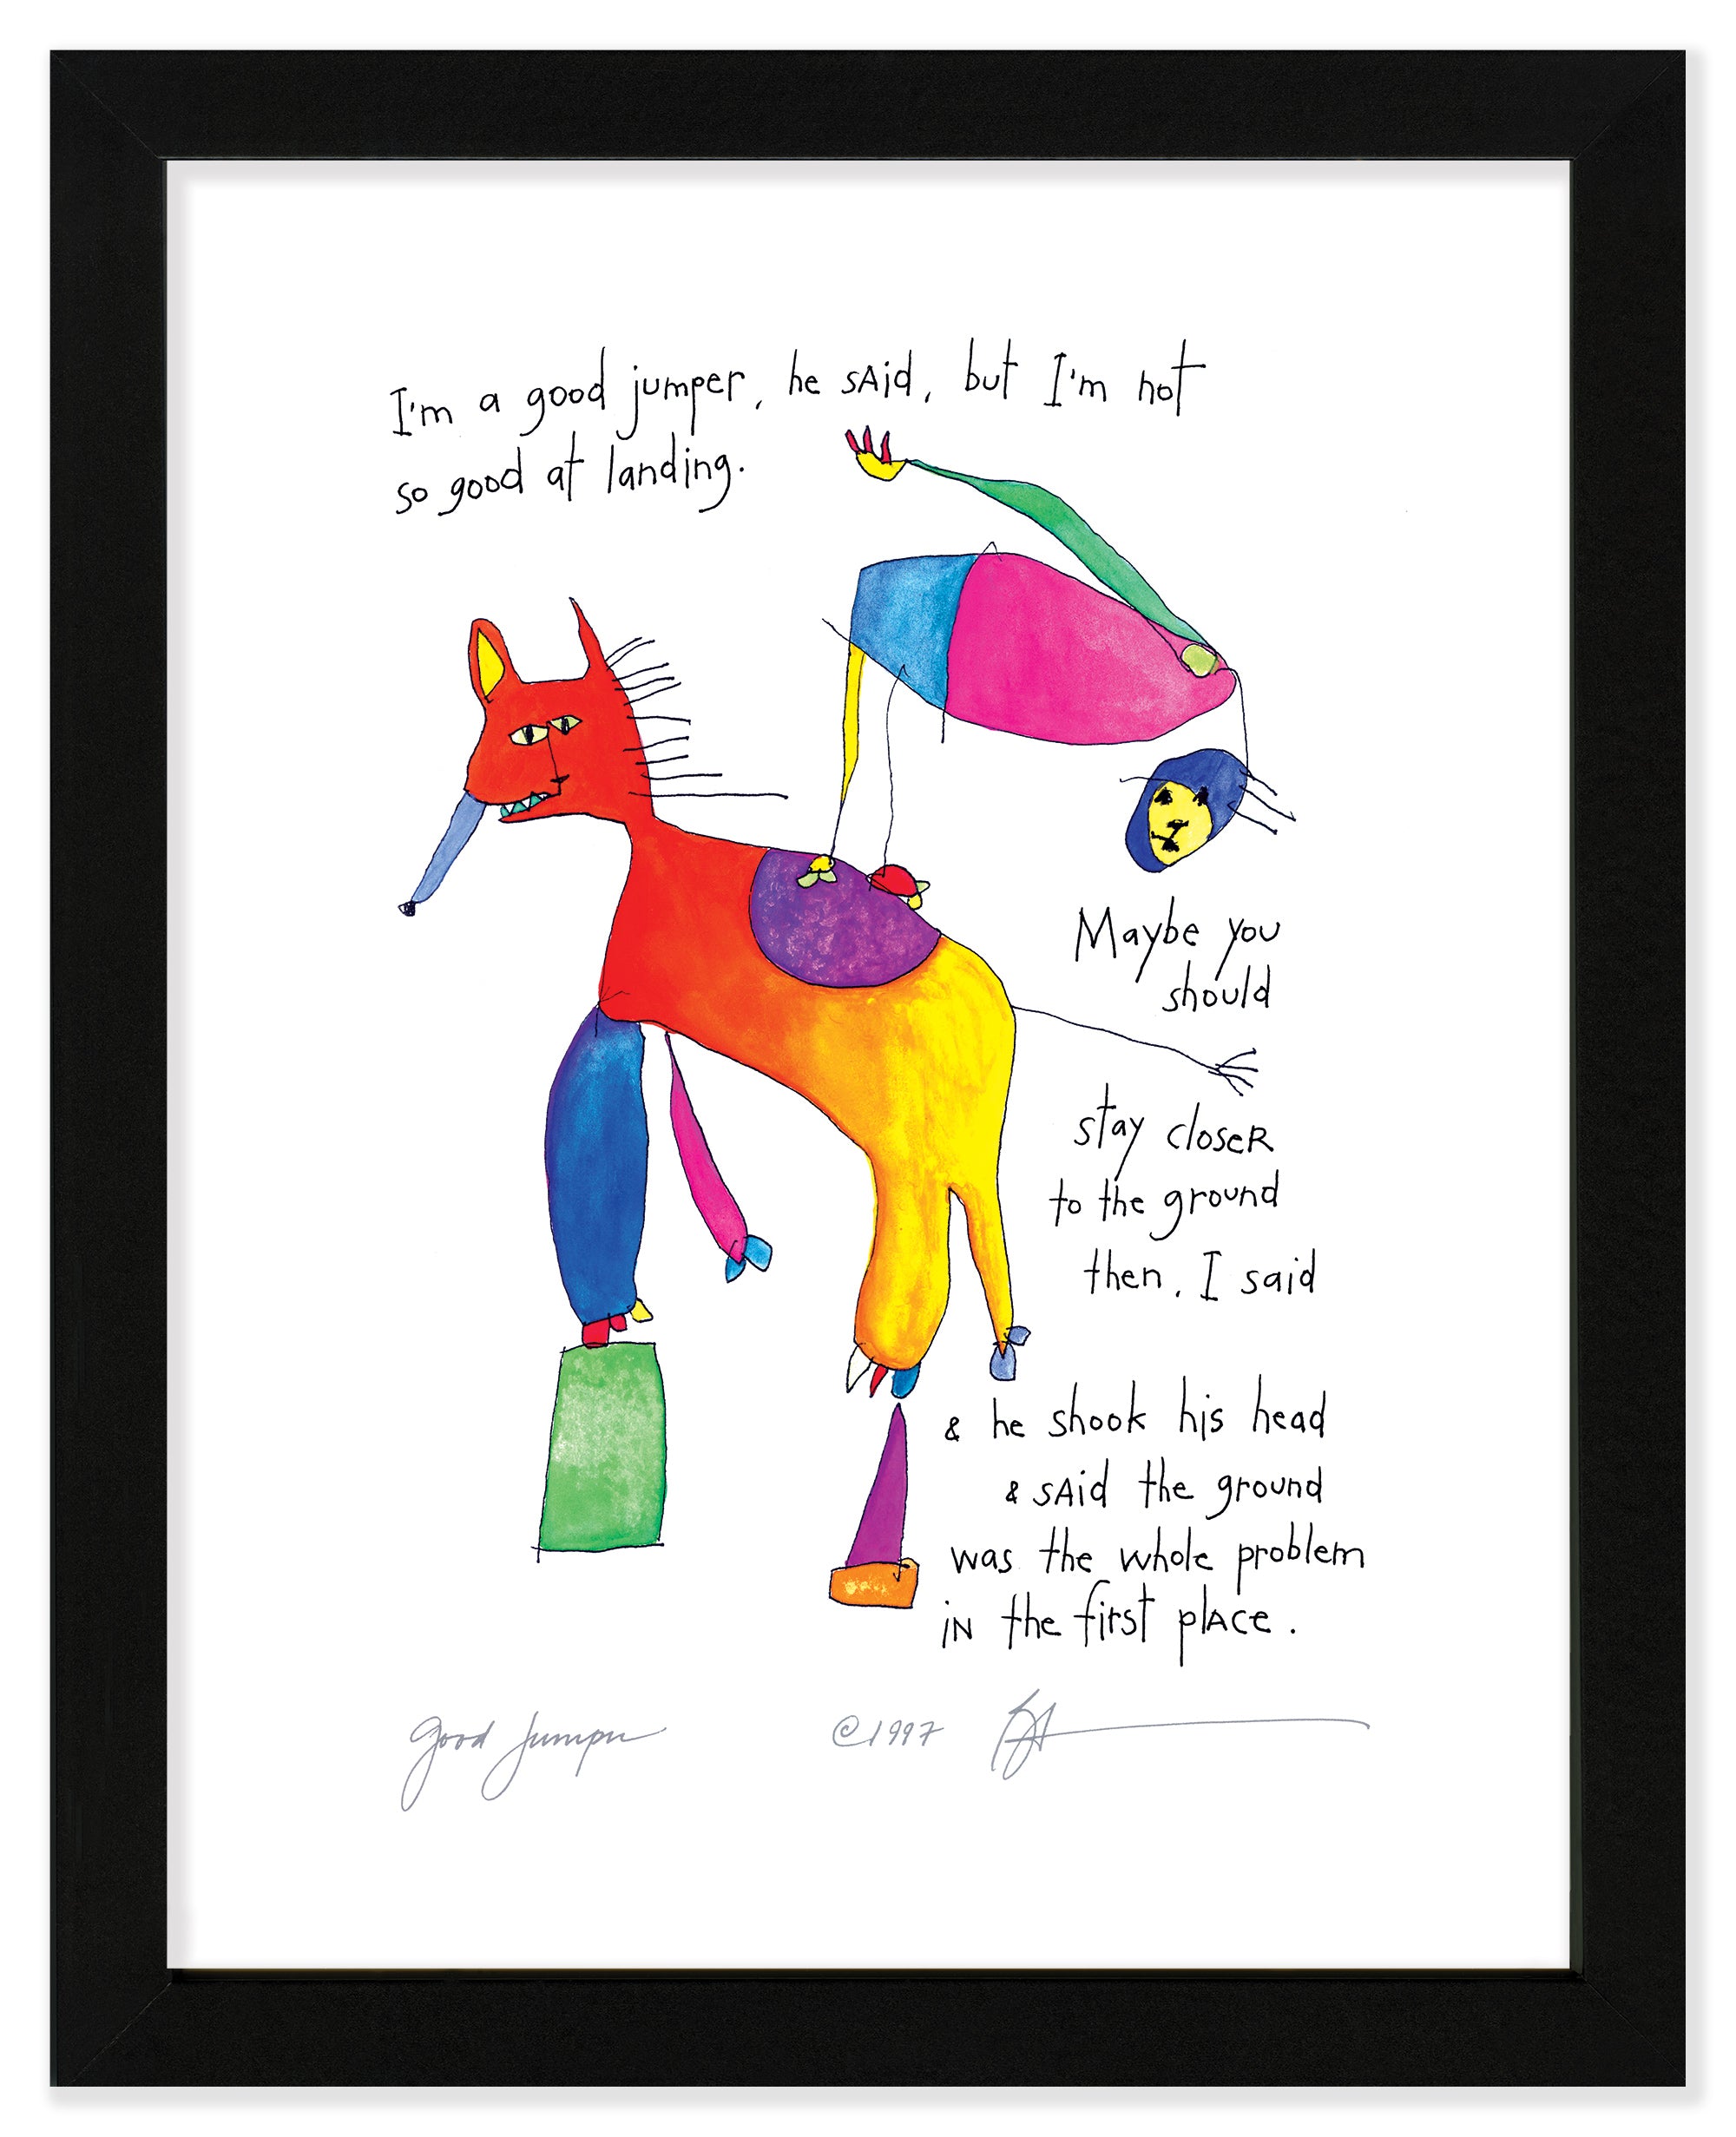 I'm a good jumper, he said, but I'm not
so good at landing.
Maybe you
should
stay closer
to the ground
then, I said
& he shook his head
& said the ground
was the whole problem
in the first place.
Good Jumper ©1997